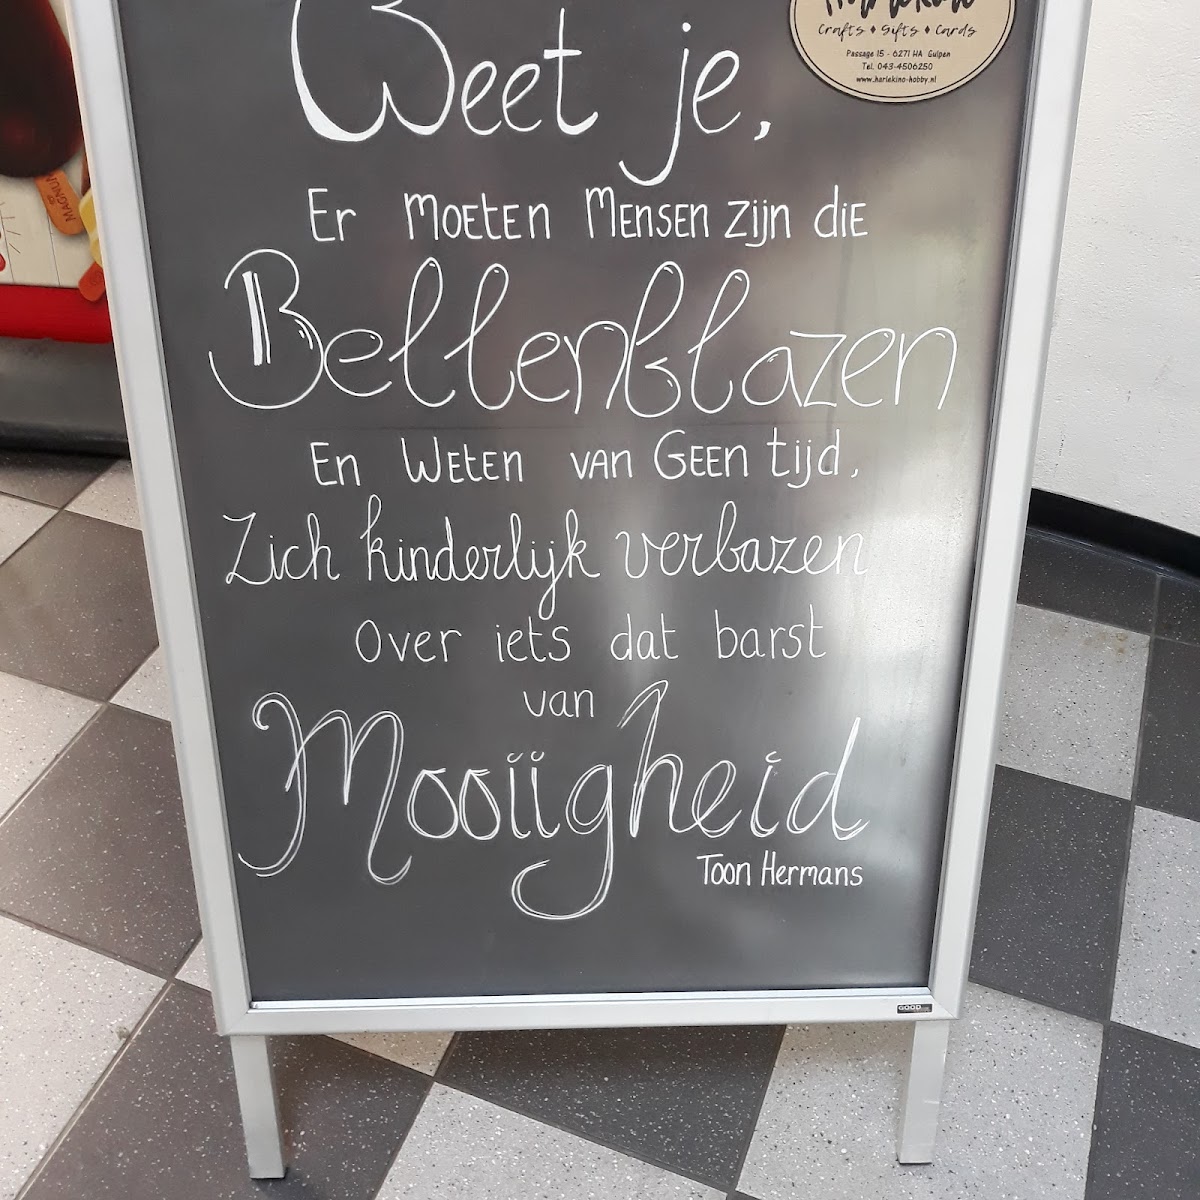 Weet je,
Er moeten Mensen zijn die
Bellenblazen
En Weten van Geen tijd,
Zich kinderlijk verbazen
Over iets dat barst
van
Mooiigheid
Toon Hermans
Crafts ♦ Gifts ♦ Cards
Passage 15 - 6271 HA Gulpen
Tel. 043-4506250
www.harlekino-hobby.nl
MAGNUM
GOOD